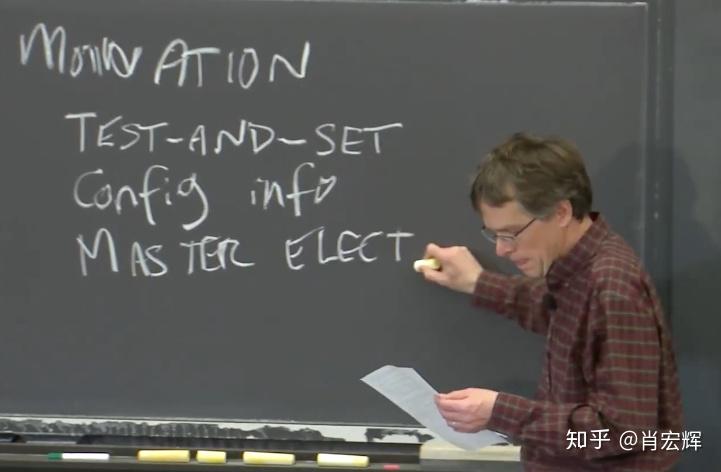 MOTIVATION
TEST-AND-SET
Config info
MASTER ELECT
知乎 @肖宏辉